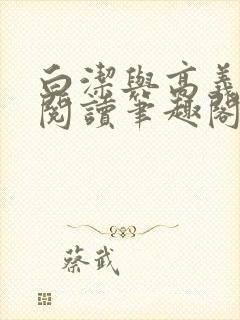 白潔與高義
閱讀筆趣閣
蔡武